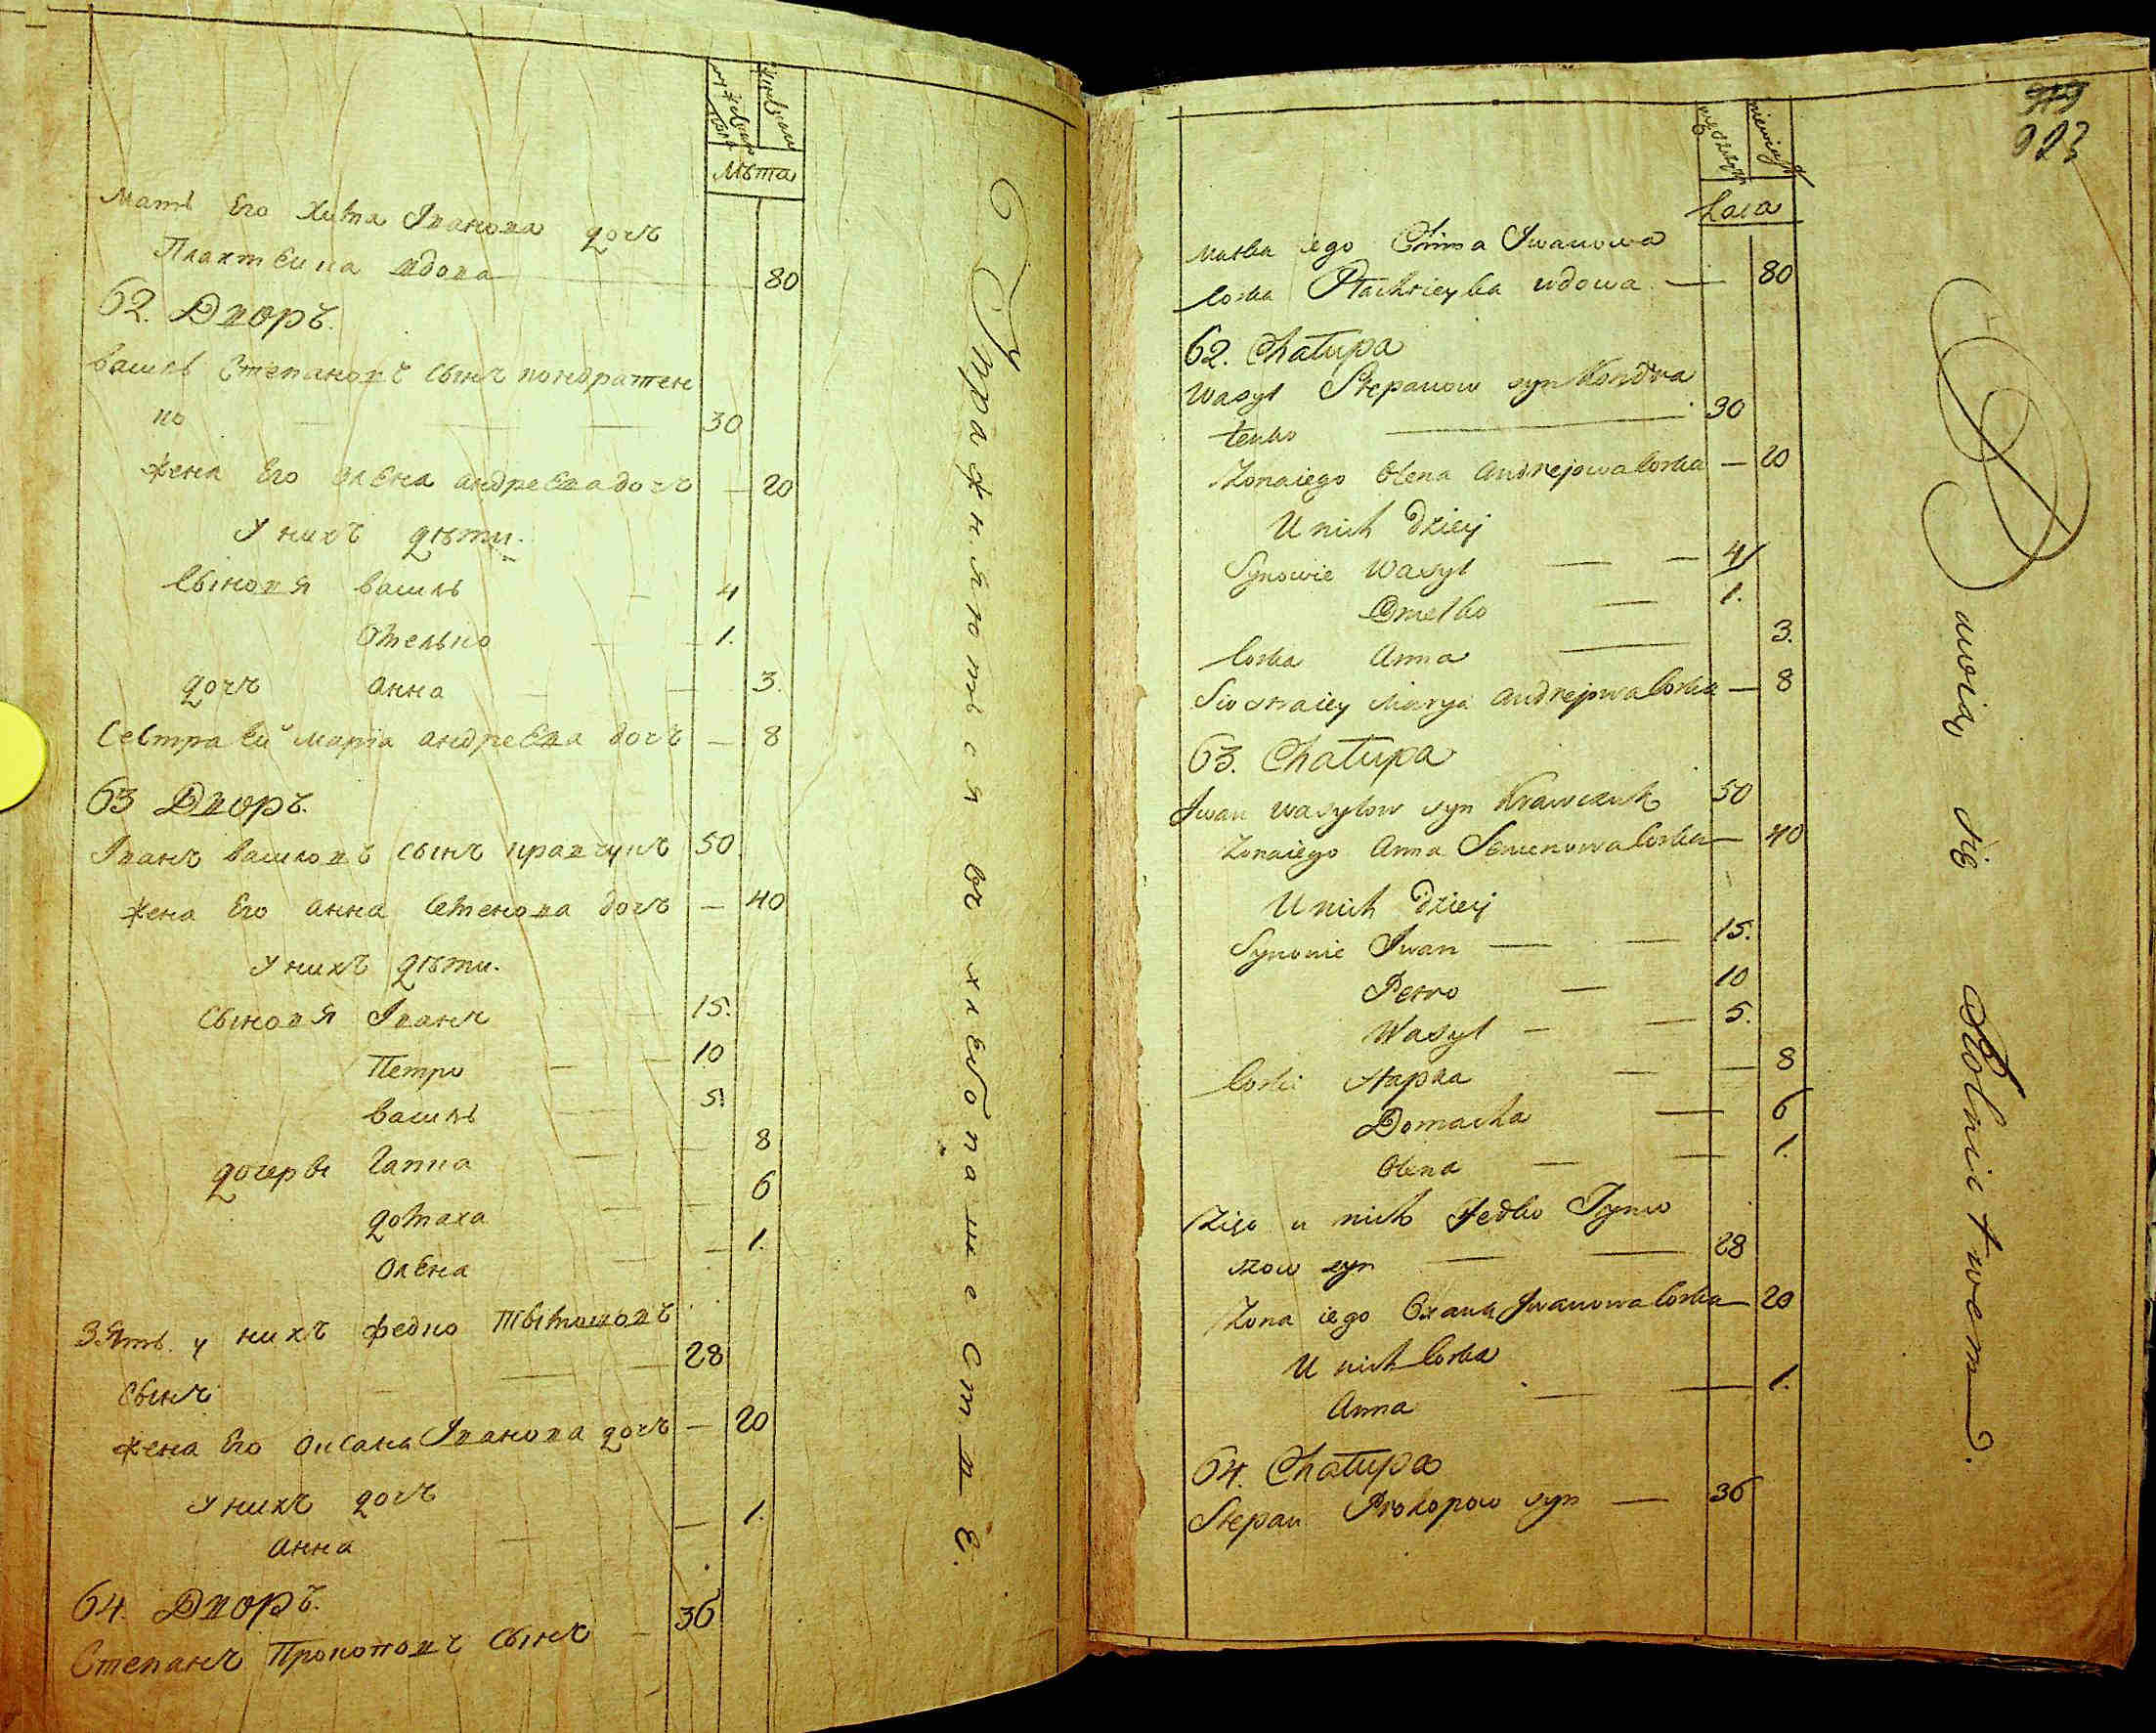 Лѣта
Мать Его Хима Іванова дочъ
Плахтеина вдова 80
62. Дворъ.
Василь Степановъ сынъ кондратен
ко 30
жена Его Олена андреева дочъ 20
У нихъ дѣти.
Сыновя Василь 4
Омелько 1.
дочъ Анна 3.
Сестра Ей Маріа андреева дочъ 8
63 Дворъ.
Іванъ Василовъ сынъ кравчукъ 50
жена Его анна Семенова дочъ 40
У нихъ дѣти.
Сыновя Іванъ 15.
Петро 10
Василь 5.
дочерѣ Гапка 8
домаха 6
Олена 1.
Зять у нихъ федко Тымошовъ
Сынъ 28
жена Его Оксана Іванова дочъ 20
У нихъ дочъ
анна 1.
64. Дворъ.
Степанъ Прокоповъ Сынъ 36
Упражняются въ хлебопашестве.
923
Lata
Matka iego Chima Iwanowa
Corka Płachcieyka wdowa 80
62. Chałupa
Wasyl Stepanow syn Kondra
tenko 30
Zona iego Olena Andrejowa Corka 20
U nich dzieci
Synowie Wasyl 4
Omelko 1.
Corka Anna 3.
Siostra iey Marya Andrejowa Corka 8
63. Chałupa
Iwan Wasylow syn Krawczuk 50
Zona iego Anna Semenowa Corka 40
U nich dzieci
Synowie Iwan 15.
Petro 10
Wasyl 5.
Corki Hapka 8
Domacha 6
Olena 1.
Zięć u nich Fedko Tymo
szow syn 28
Zona iego Oxana Iwanowa Corka 20
U nich Corka
Anna 1.
64. Chałupa
Stepan Prokopow syn 36
Bawią się Rolnictwem.